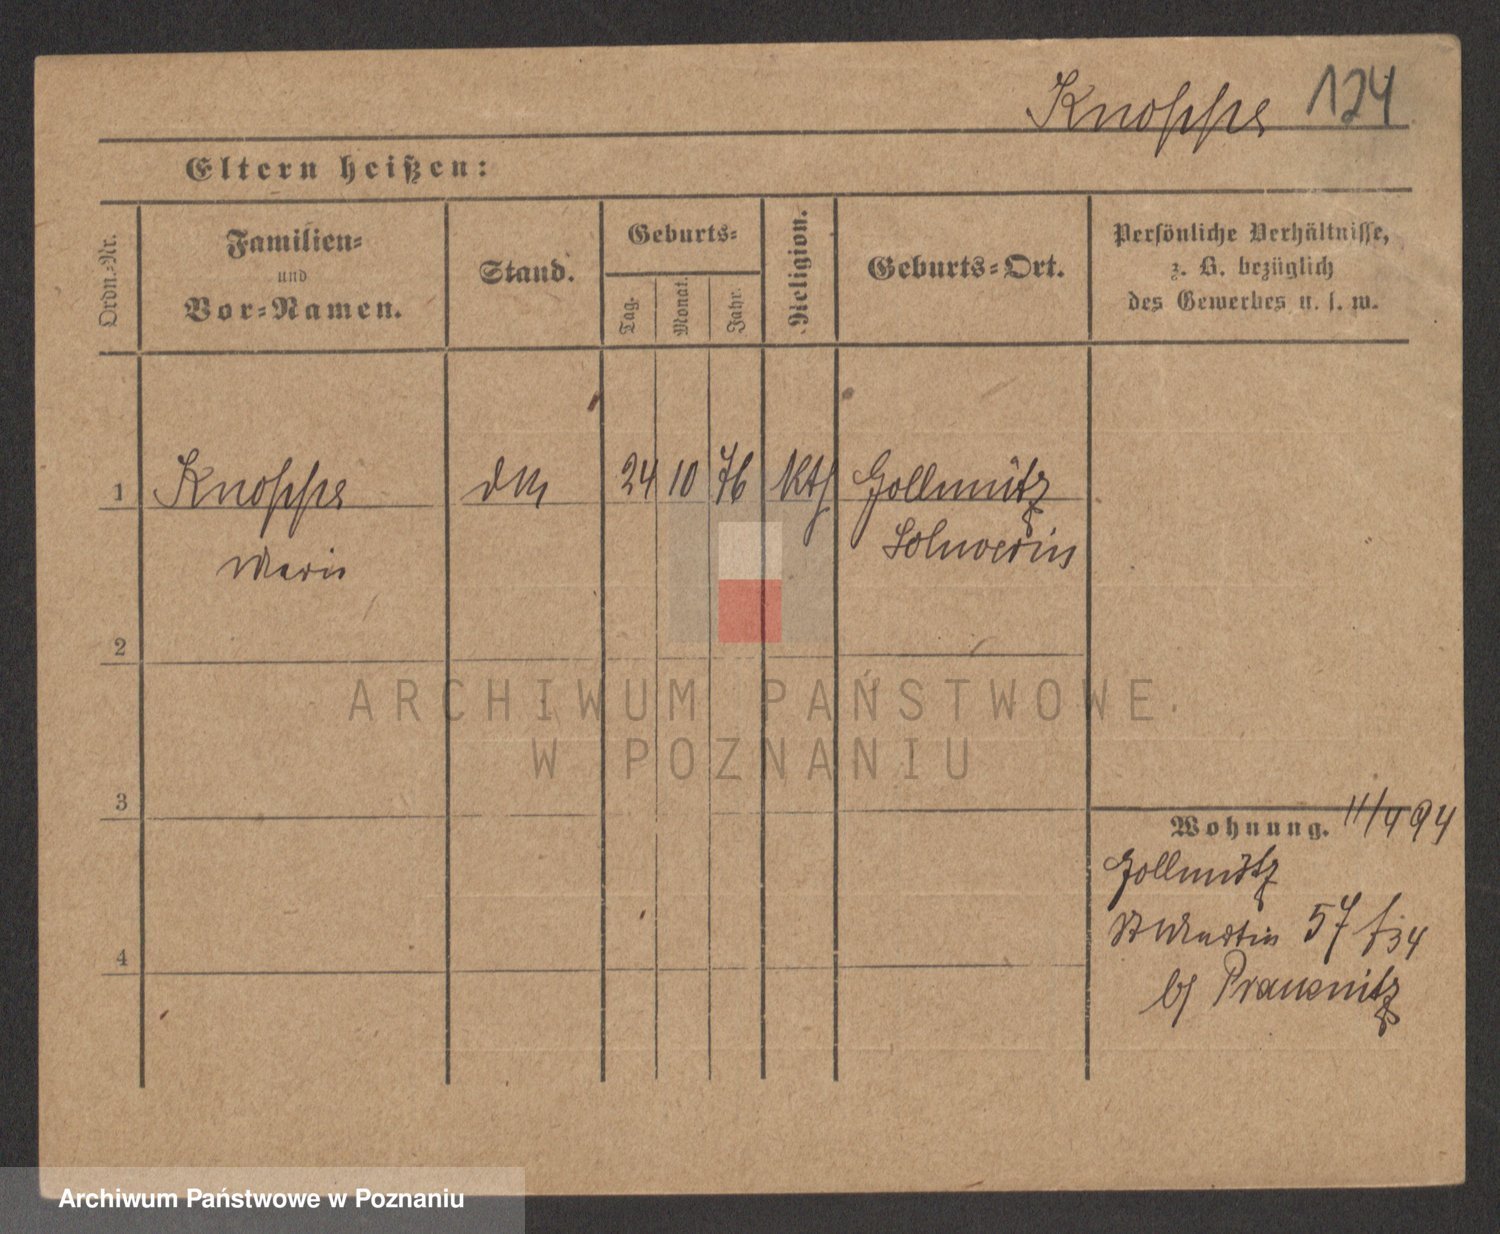 Knoppe 124
Eltern heißen:
Ordn.-Nr.
Familien-
und
Vor-Namen.
Stand.
Geburts-
Tag.
Monat.
Jahr.
Religion.
Geburts-Ort.
Persönliche Verhältnisse,
z. B. bezüglich
des Gewerbes u. s. w.
1 Knoppe 24 10 76 Kth Gollmütz
Marie Schwerin
2
3
4
Wohnung. 11/4 94
Gollmütz
St Martin 57
b/ Prausnitz
ARCHIWUM PAŃSTWOWE
W POZNANIU
Archiwum Państwowe w Poznaniu